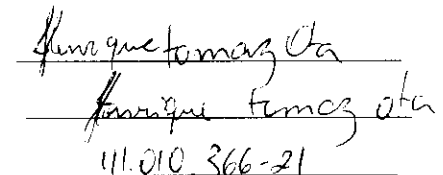 Henrique tomaz Ota
Henrique tomaz ota
111.010.366-21